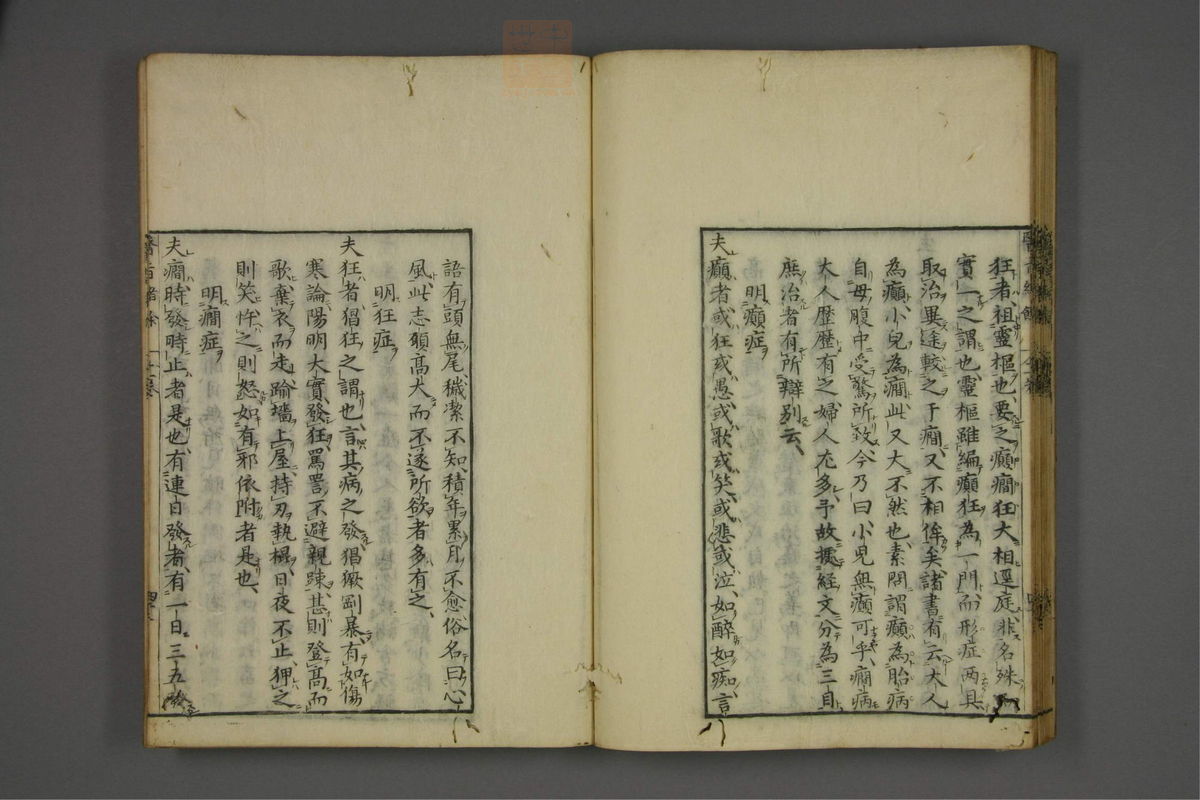 狂者、祖靈樞也、要之癲癇狂大相逕庭、非名殊
實一之謂也、靈樞雖編癲狂為一門、而形症兩具
取治異途、較之于癇、又不相侔矣、諸書有云大人
為癲、小兒為癇、此又大不然也、素問謂癲為胎病
自母腹中受驚所致、今乃曰小兒無癲可乎、癇病
大人歷歷有之、婦人尤多、予故據經文分為三、自
庶治者有所辯別云、
明癲症
夫癲者、或狂或愚、或歌或笑、或悲或泣、如醉如痴、言
語有頭無尾、穢潔不知、積年累月不愈、俗名曰心
風、此志願高大而不遂所欲者多有之、
明狂症
夫狂者、猖狂之謂也、言其病之發猖獗剛暴、有如傷
寒論陽明大實發狂、罵詈不避親踈、甚則登高而
歌、棄衣而走、踰墻上屋、持刃執棍、日夜不止、狎之
則笑、忤之則怒、如有邪依附者是也、
明癇症
夫癇、時發時止者是也、有連日發者、有一日三五發